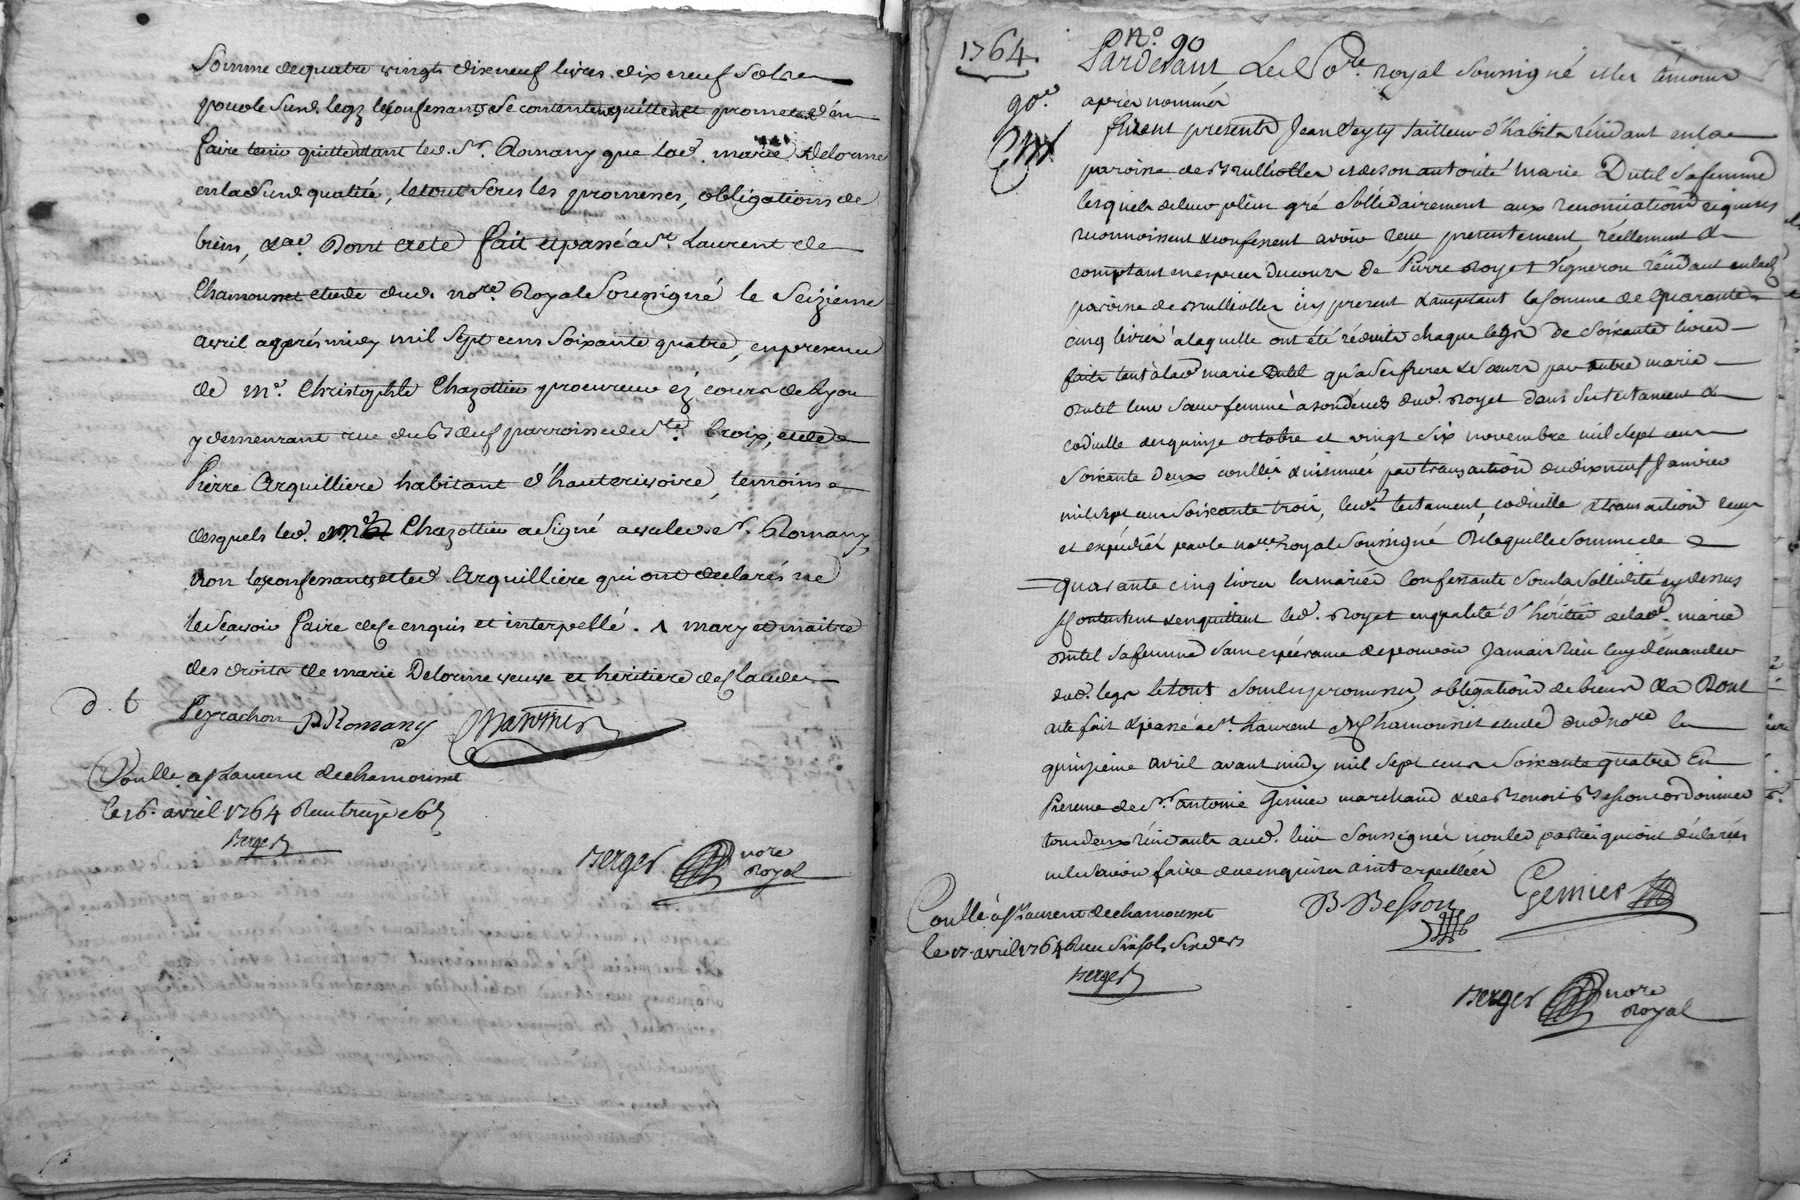 Somme de quatre vingts dixneuf livres dix neuf sols
pour le susd. legz les confessants se contentent quittent et promettent en
faire tenir quitte tant led. Sr. Romany que lad. marie Delorme
en lad. susd. qualité, le tout sous les promesses, obligations de
biens, &ae. Dont acte fait et passé a St. Laurent de
Chamousset etude dud. nore. Royal Soussigné le Seizieme
avril après midy mil Sept cens Soixante quatre, en presence
de Me. Christophle Chazottier procureur ez cours de Lyon
y demeurant rue du Bœuf parroisse de Ste. Croix, et de
Pierre Arquilliere habitant d'hauterivoire, temoins
desquels led. Me. Chazottier a Signé avec led. Sr. Romany,
non les confessants et led. Arquilliere qui ont declarés ne
le Sçavoir faire de ce enquis et interpellé. ʌ mary et maitre
des droits de marie Delorme veuve et héritiere de Claude
d. t Peyrachon P Romany Chazottier
Conllé. a St Laurent de chamousset
le 16. avril 1764 Reçu treize s 6 d
Berger
Berger nore
Royal
1764. No. 90
Pardevant Le No.re royal soussigné et les témoins
90e. après nommés
furent presents Jean Peyty tailleur d'habits résidant en la
paroisse de Brullioles et de son autorité marie Dutel sa femme
lesquels de leur plein gré sollidairement aux renonciations requises
reconnoissent & confessent avoir reçu presentement, réellement &
comptant en especes du cours de Pierre Royet Vigneron résidant en lad.
paroisse de Brullioles icy present & acceptant la somme de Quarante
cinq livres a laquelle ont été réduits chaque legs de soixante livres
faits tant à lad. marie Dutel qu'a ses freres & sœurs par autre marie
Dutel leur sœur femme a son décès dud. Royet dans ses testament &
codicille des quinze octobre et vingt six novembre mil sept cens
soixante deux conllés & insinués par transaction du dixneuf Janvier
mil sept cens soixante trois, lesd. testament, codicille & transaction reçus
et expédiés par le nore royal soussigné De laquelle somme de
quarante cinq livres les mariés Confessants sous la sollidité cy dessus
se contentent & en quittent led. Royet en qualité d'héritier de lad. marie
Dutel sa femme sans espérance de pouvoir Jamais rien luy demander
dud. legs le tout sous les promesses, obligations de biens &a Dont
acte fait & passé a St. Laurent de Chamousset etude dud nore le
quinzieme avril avant midy mil sept cens soixante quatre En
Presence de Sr. antoine Genier marchand & de Benoit Besson cordonnier
tous deux résidants aud. lieu soussignés non les parties qui ont déclarées
ne le savoir faire de ce enquises & interpellées
Conllé. a St Laurent de chamousset
le 17. avril 1764 Reçu six sols six ders
Berger
B Besson Genier
Berger nore
Royal